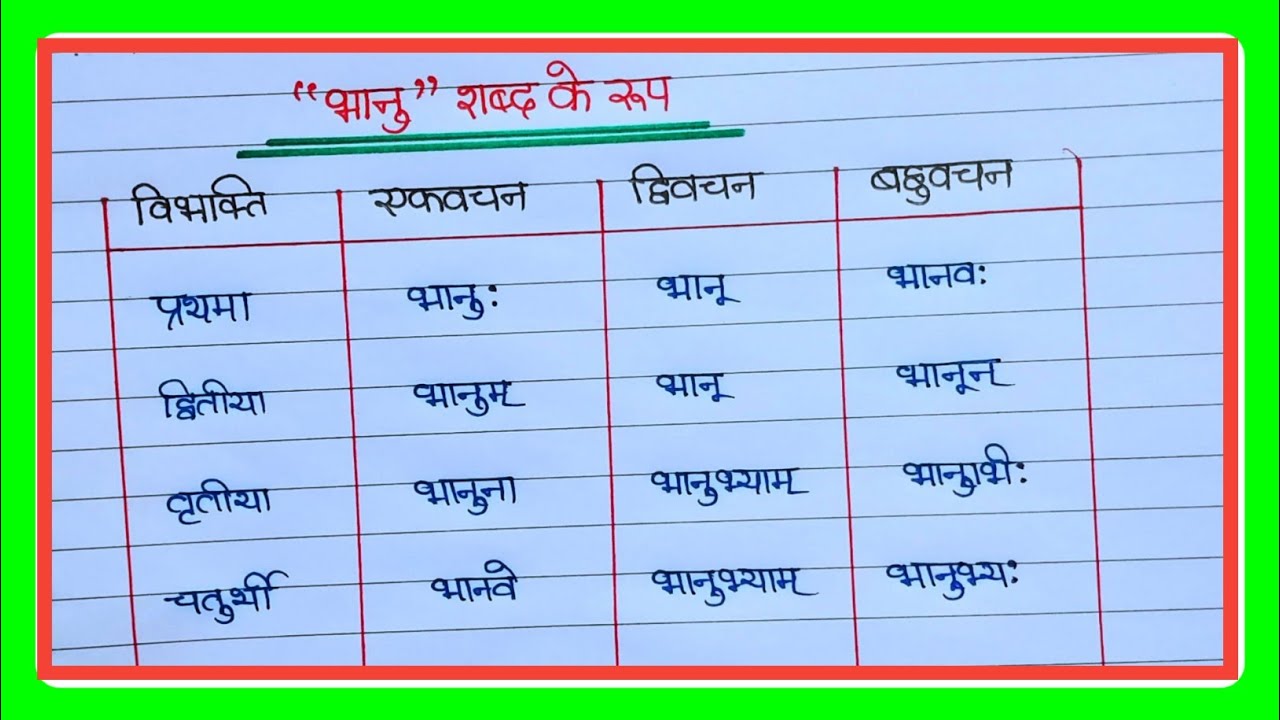 “भानु” शब्द के रूप
विभक्ति एकवचन द्विवचन बहुवचन
प्रथमा भानुः भानू भानवः
द्वितीया भानुम् भानू भानून्
तृतीया भानुना भानुभ्याम् भानुभिः
चतुर्थी भानवे भानुभ्याम् भानुभ्यः